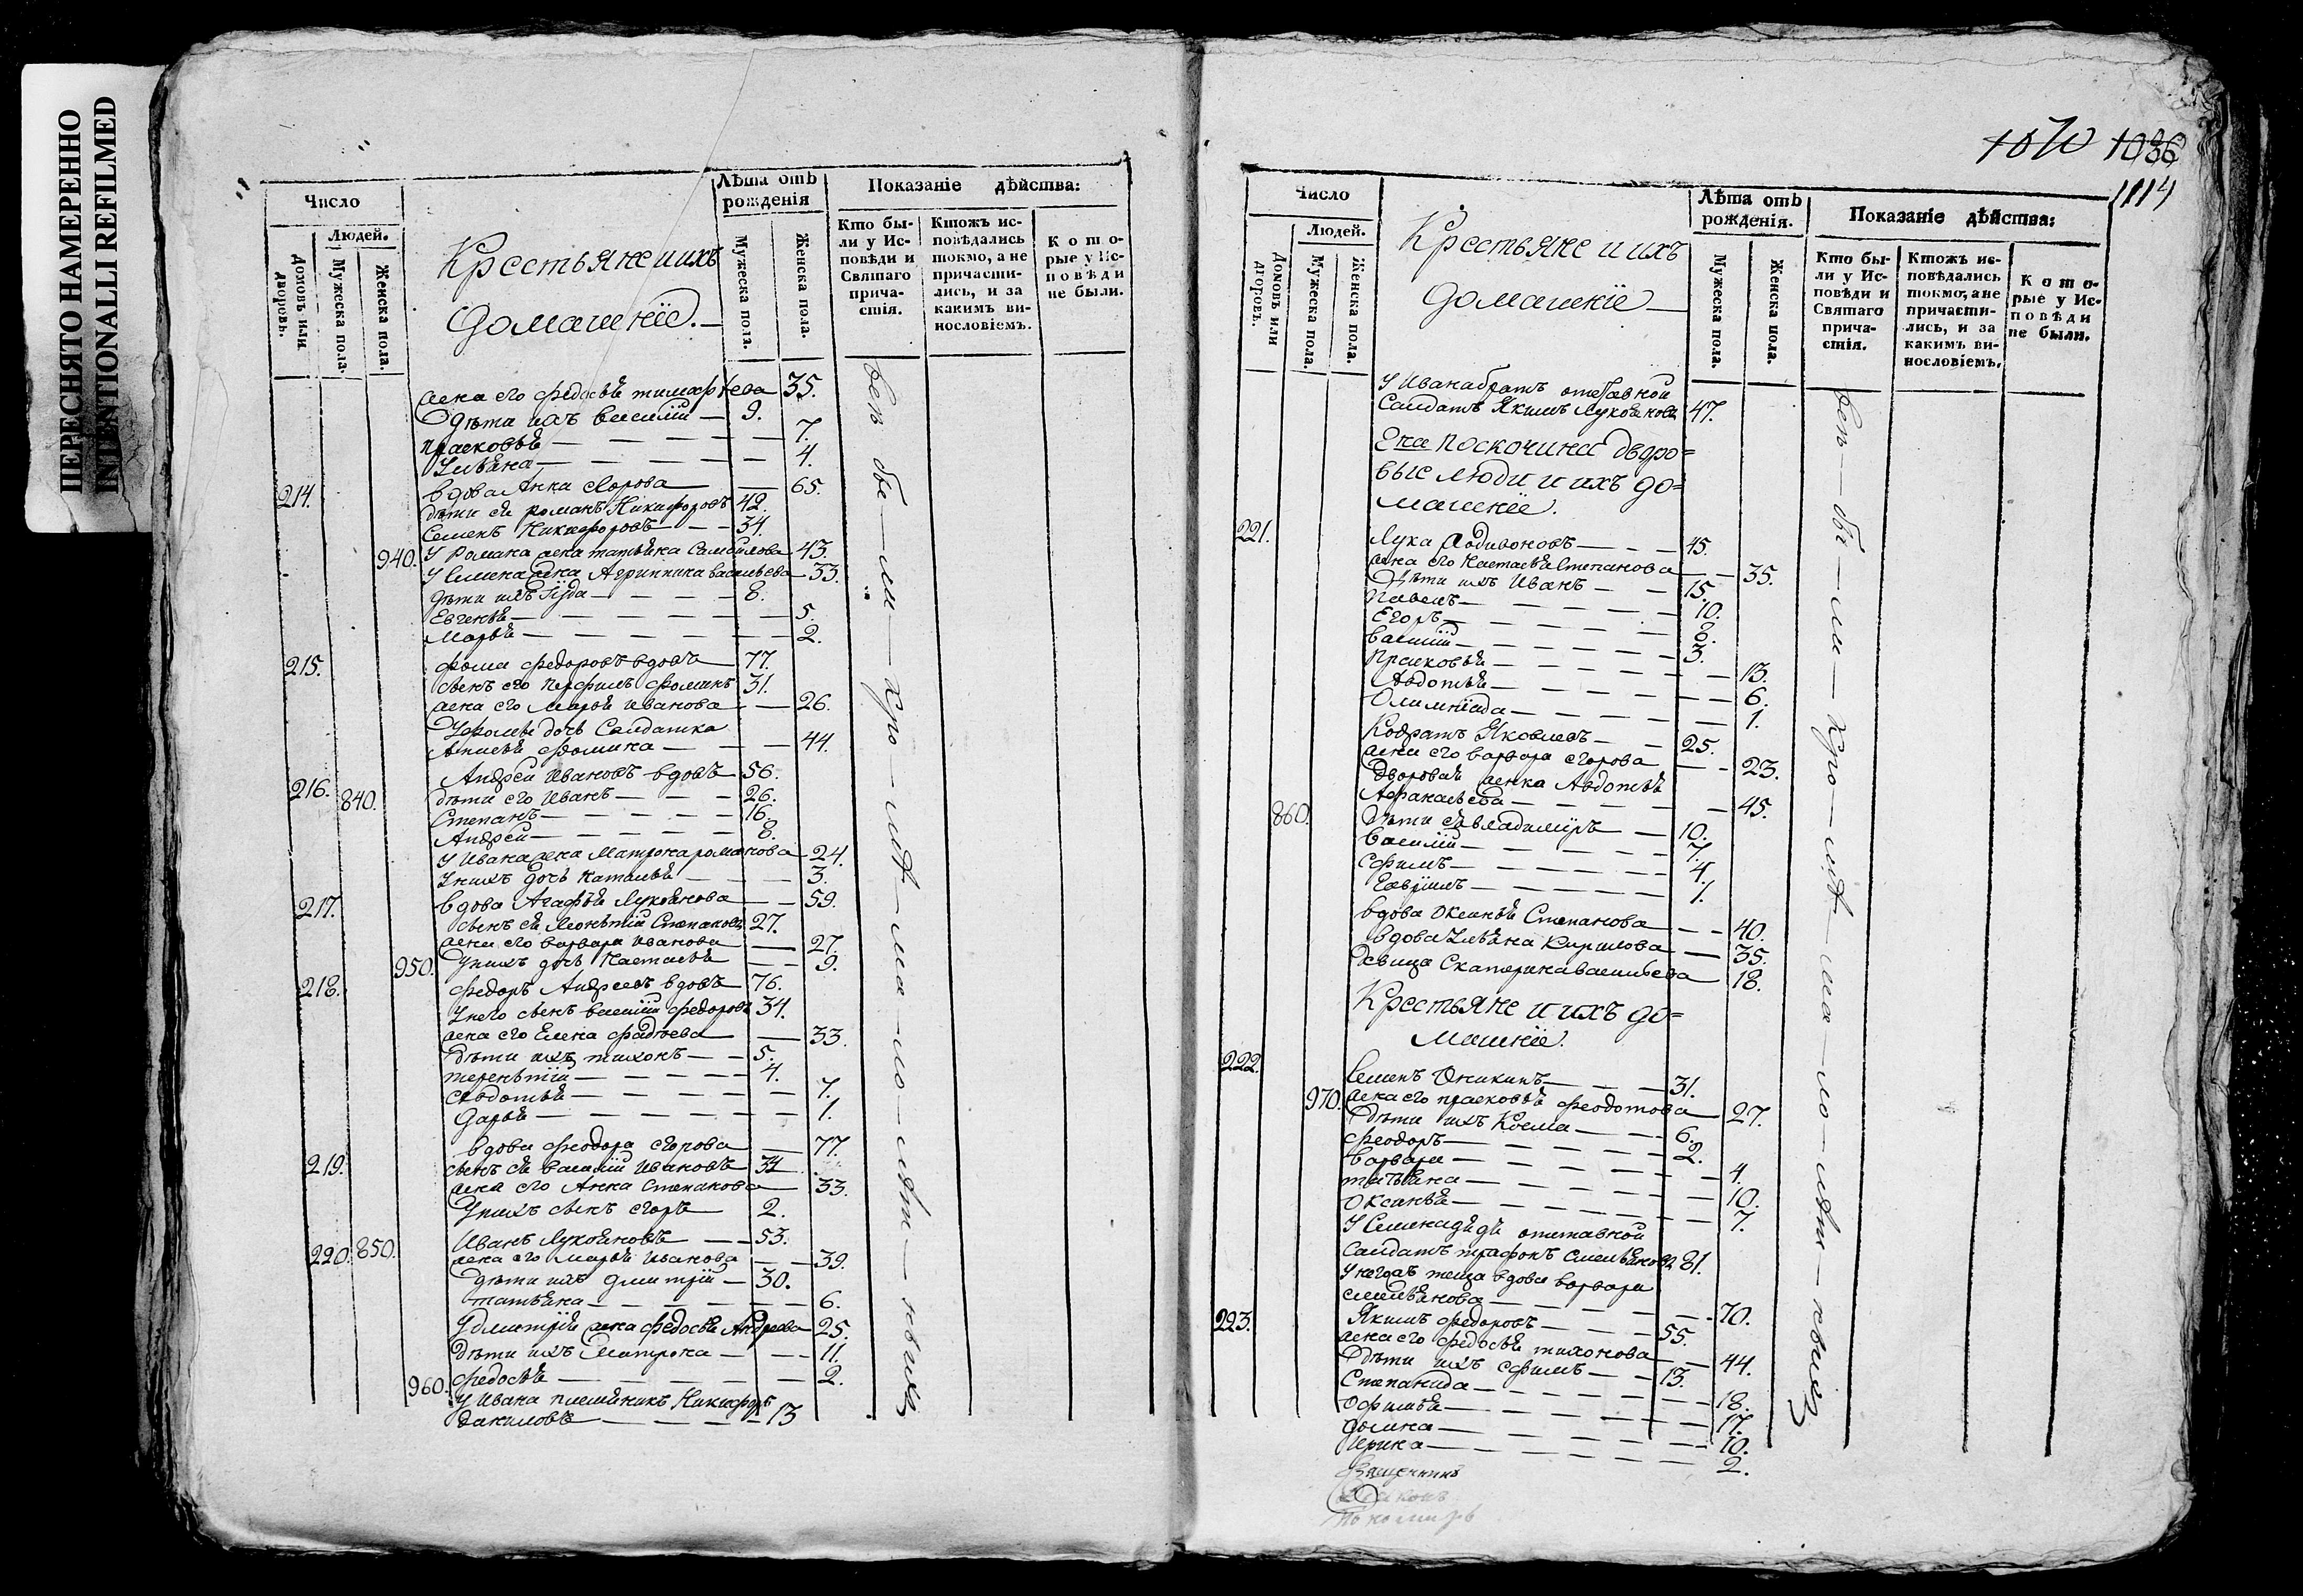 ПЕРЕСНЯТО НАМЕРЕННО
INTENTIONALLI REFILMED
Число
Лѣта отъ рожденія
Показаніе дѣйства:
Людей.
Домовъ или дворовъ.
Мужеска пола.
Женска пола.
Крестьяне и ихъ
домашніе.
Мужеска пола.
Женска пола.
Кто бы-
ли у Ис-
повѣди и
Святаго
прича-
стія.
Ктожъ ис-
повѣдались
токмо, а не
причасти-
лись, и за
какимъ ви-
нословіемъ.
Кото-
рые у Ис-
повѣди
не были.
жена его Федосья Тимофѣева 35.
Дѣти ихъ Василій 9.
Прасковья 7.
Ульяна 4.
214. вдова Анна 65.
дѣти ея Романъ Никифоровъ 42.
Семенъ Никифоровъ 34.
940. У Романа жена Татьяна Самойлова 43.
У Семена жена Агрипина Васильева 33.
Дѣти ихъ Гуда 8.
Евгенья 5.
Марья 2.
215. Фома Федоровъ вдовъ 77.
сынъ его Перфилъ Фоминъ 31.
жена его Марья Иванова 26.
У Фомы дочь Салдатка
Анисья Фомина 44.
216. 840. Андрей Ивановъ вдовъ 56.
дѣти его Иванъ 26.
Степанъ 16.
Андрей 8.
У Ивана жена Матрона Романова 24.
У нихъ дочь Наталья 3.
217. вдова Агафья Лукоянова 59.
сынъ ея Леонтій Степановъ 27.
жена его Варвара Иванова 27.
950. У нихъ дочь Настасья 9.
218. Федоръ Андреевъ вдовъ 76.
У него сынъ Василій Федоровъ 34.
жена его Елена Фадѣева 33.
Дѣти ихъ Тихонъ 5.
Терентій 4.
Авдотья 7.
Дарья 1.
219. вдова Феодора Егорова 77.
сынъ ея Василій Ивановъ 34
жена его Анна Степанова 33.
У нихъ сынъ Егоръ 2.
220. 850. Иванъ Лукояновъ 53.
жена его Марья Иванова 39.
дѣти ихъ Дмитрій 30.
Татьяна 6.
У Дмитрія жена Федосья Андреева 25.
Дѣти ихъ Матрона 11.
960. Федосья 2.
У Ивана племянникъ Никифоръ
Даниловъ 13
1070 1086
1114
Число
Лѣта отъ рожденія.
Показаніе дѣйства:
Людей.
Домовъ или дворовъ.
Мужеска пола.
Женска пола.
Крестьяне и ихъ
домашніе
Мужеска пола.
Женска пола.
Кто бы-
ли у Ис-
повѣди и
Святаго
прича-
стія.
Ктожъ ис-
повѣдались
токмо, а не
причасти-
лись, и за
какимъ ви-
нословіемъ.
Кото-
рые у Ис-
повѣди
не были.
У Ивана братъ отставной
Салдатъ Якимъ Лукояновъ 47.
Поскочина дворо=
выс люди и ихъ до=
машніе.
221. Лука 45.
жена его Настасья Степанова 35.
Дѣти ихъ Иванъ 15.
Павелъ 10.
Егоръ 8.
Василій 3.
Прасковья 13.
Авдотья 6.
Олимпіада 1.
Кодратъ Яковлевъ 25.
жена его Варвара Егорова 23.
Дворовая женка Авдотья
Афанасьева 45.
860. Дѣти ея Владимиръ 10.
Василій 7.
Ефимъ 4.
1.
вдова Оксинья Степанова 40.
вдова Ульяна Кирилова 35.
Девица Екатерина Васильева 18.
Крестьяне и ихъ до=
машніе.
222. Семенъ Оникинъ 31.
970. жена его Прасковья Феодотова 27.
Дѣти ихъ Козма 6.
Феодоръ 2.
Варвара 4.
Татьяна 10.
Оксинья 7.
У Семена дядя отставной
Салдатъ Трафонъ Емельяновъ 81.
теща вдова Варвара
Емельянова 70.
223. Якимъ Федоровъ 55.
жена его Федосья Тихонова 44.
Дѣти ихъ Ефимъ 13.
Степанида 18.
Офимья 17.
Домна 10.
Ирина 2.
Священникъ
Диаконъ
Пономарь